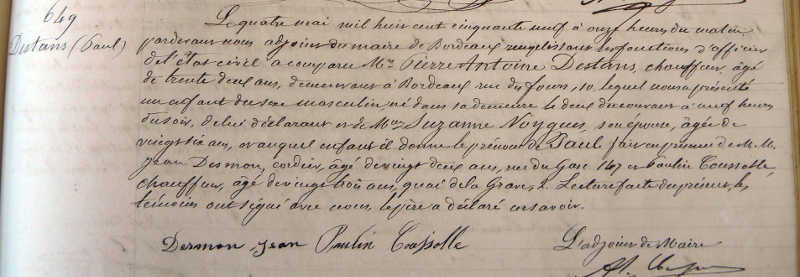 649
Destans (Paul)
Le quatre mai mil huit cent cinquante neuf à onze heures du matin
pardevant nous adjoint du maire de Bordeaux remplissant les fonctions d'officier
de l'état civil a comparu Mr. Pierre Antoine Destans, chauffeur, âgé
de trente deux ans, demeurant à Bordeaux rue des fours, 10, lequel nous a présenté
un enfant du sexe masculin né dans sa demeure le deux du courant à neuf heures
du soir, de lui déclarant et de Suzanne Noygues, son épouse, âgée de
vingt six ans, et auquel enfant il donne le prénom de Paul fait en présence de M.M.
Jean Desmon, cordier, âgé de vingt deux ans, rue du Gaz 147 et Paulin Toussolle,
chauffeur, âgé de vingt trois ans, quai de la Grave, 2. Lecture faite du présent, les
témoins ont signé avec nous, le père a déclaré ne savoir.
Desmon, Jean Paulin L'adjoint de Maire